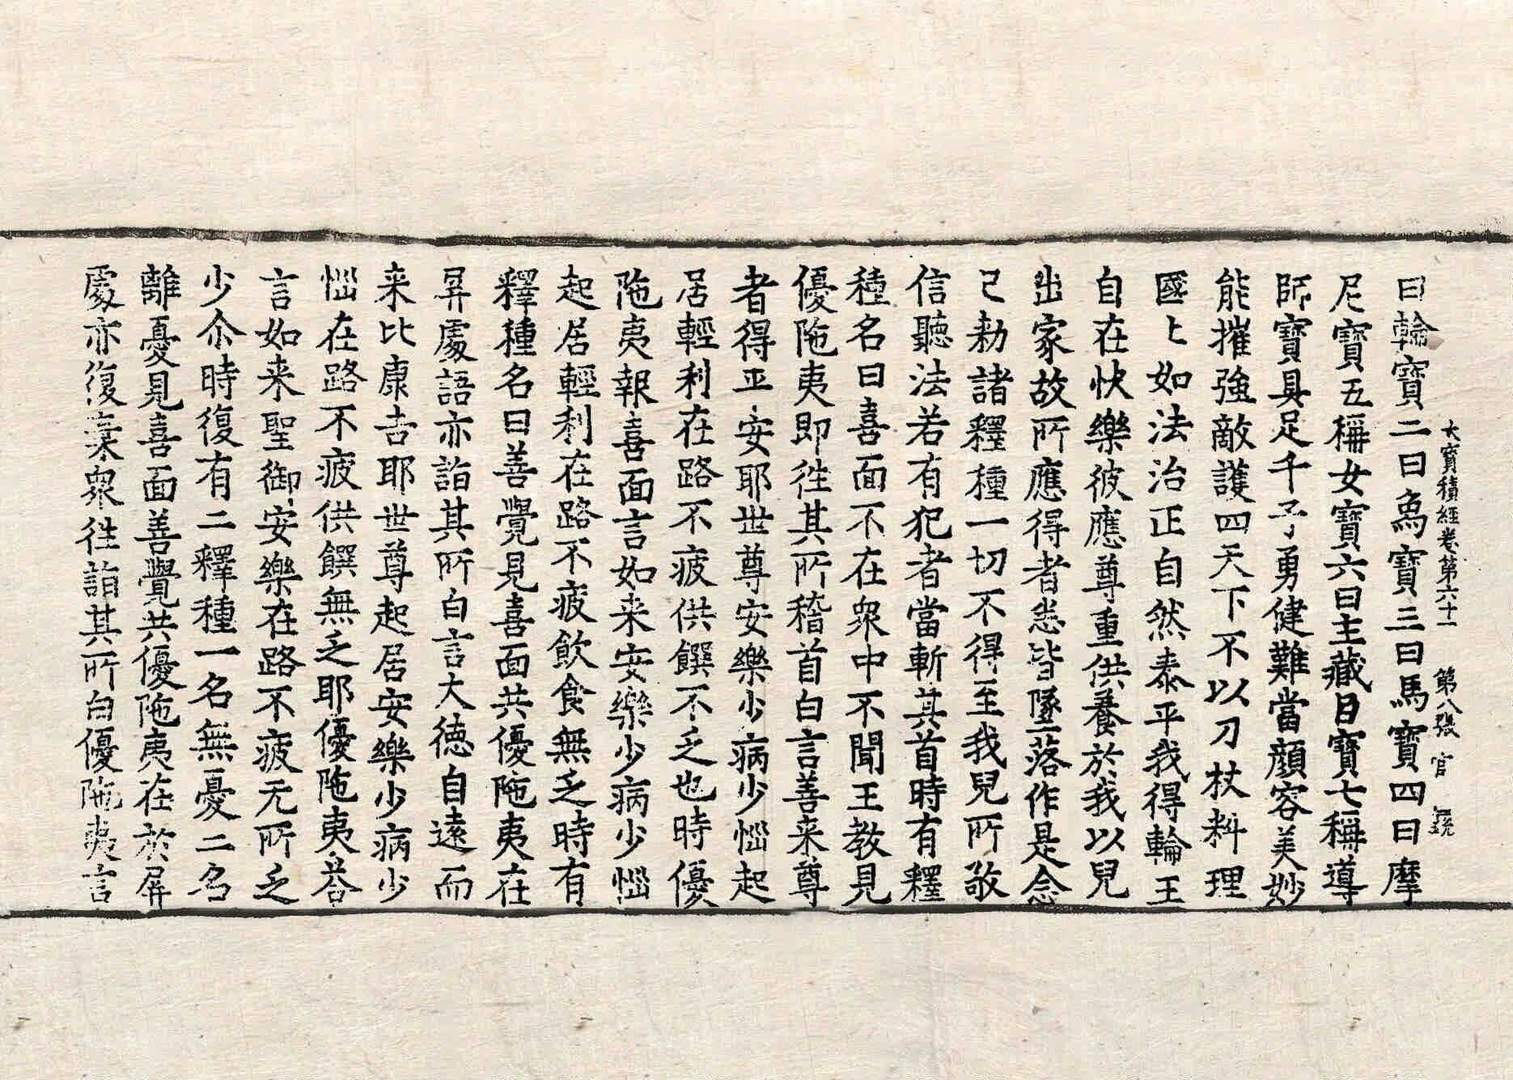 大寶積經卷第六十一 第八張 官
曰輪寶二曰為寶三曰馬寶四曰摩
尼寶五稱女寶六曰主藏日寶七稱導
師寶具足千子勇健難當顏容美妙
能摧強敵護四天下不以刀杖料理
國〻如法治正自然泰平我得輪王
自在快樂彼應尊重供養於我以兒
出家故所應得者悉皆墜落作是念
已勑諸釋種一切不得至我兒所敬
信聽法若有犯者當斬其首時有釋
種名曰喜面不在衆中不聞王教見
優陁夷即徃其所稽首白言善来尊
者得平安耶世尊安樂少病少惱起
居輕利在路不疲供饌不乏也時優
陁夷報喜面言如来安樂少病少惱
起居輕利在路不疲飲食無乏時有
釋種名曰善覺見喜面共優陁夷在
屏處語亦詣其所白言大德自遠而
来比康吉耶世尊起居安樂少病少
惱在路不疲供饌無乏耶優陁夷荅
言如来聖御安樂在路不疲无所乏
少尒時復有二釋種一名無憂二名
離憂見喜面善覺共優陁夷在於屏
處亦復棄衆徃詣其所白優陁夷言